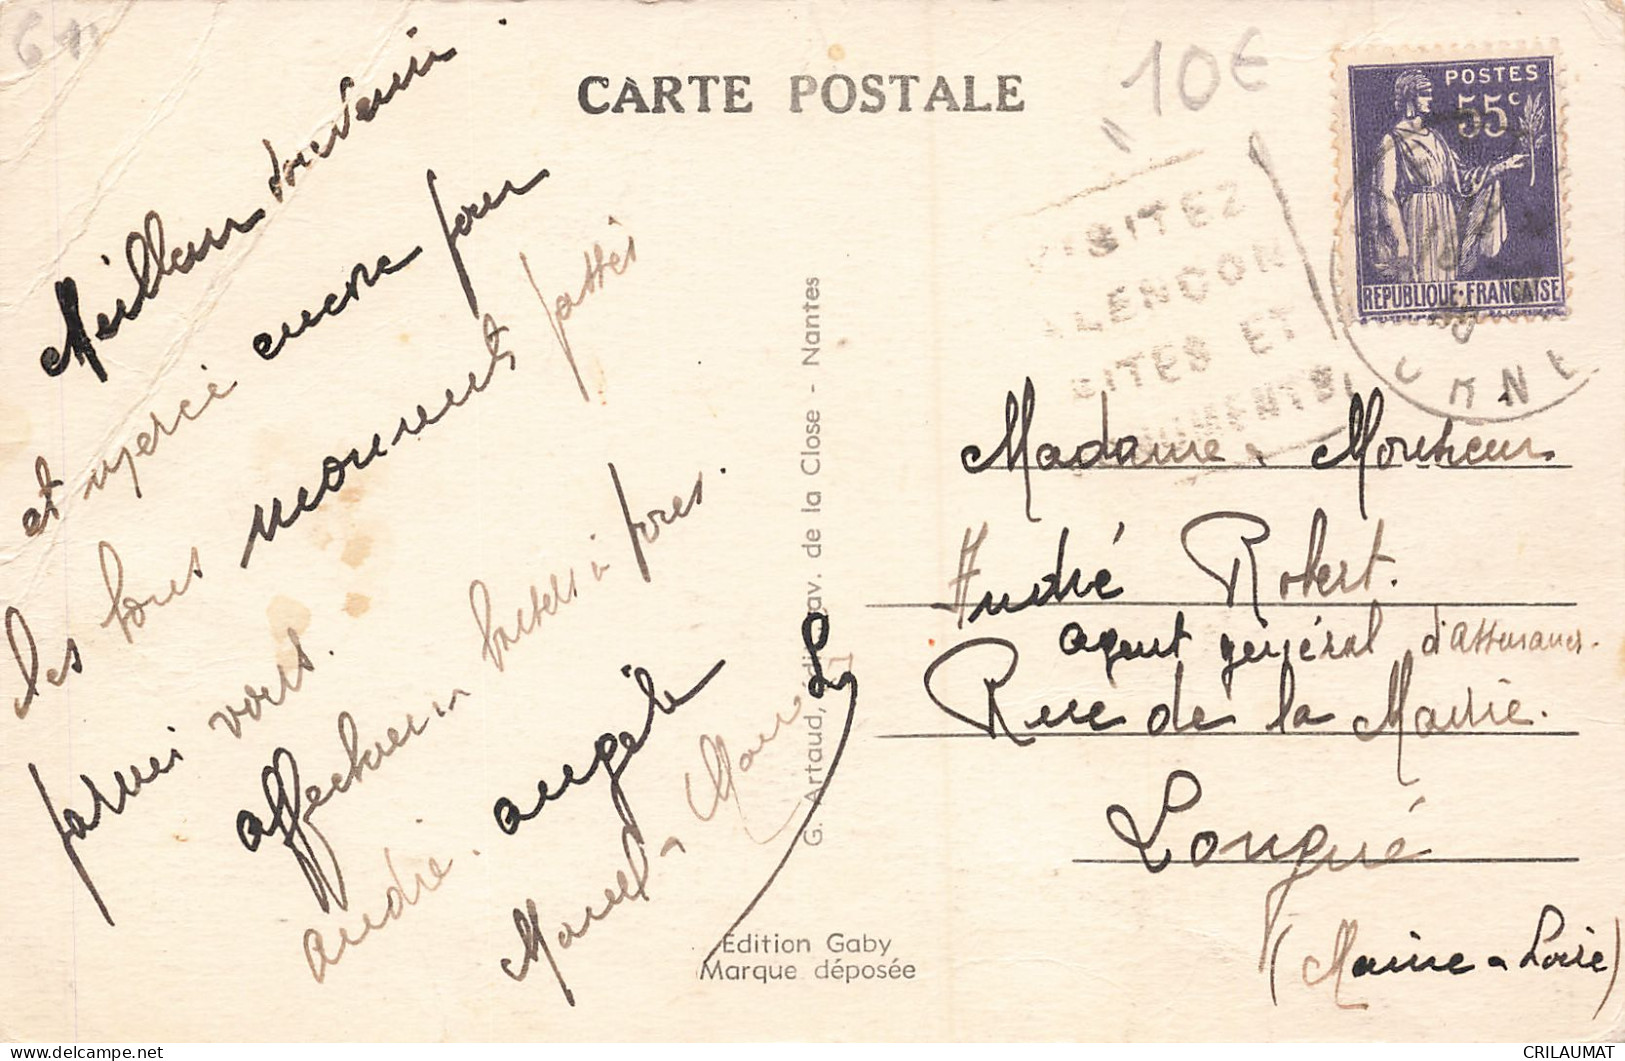 61
CARTE POSTALE
10€
POSTES
55c
REPUBLIQUE·FRANÇAISE
VISITEZ
ALENCON
SITES ET
MONUMENTS
ORNE
Meilleur souvenir
et merci encore pour
les bons moments passés
parmi vous.
affectueux baisers à
andré. angèle
Marcel
G. Artaud, édit., av. de la Close - Nantes
Edition Gaby
Marque déposée
Madame & Monsieur
André Robert.
agent général d'assurances.
Rue de la Mairie.
Longué
(Maine & Loire)
CRILAUMAT